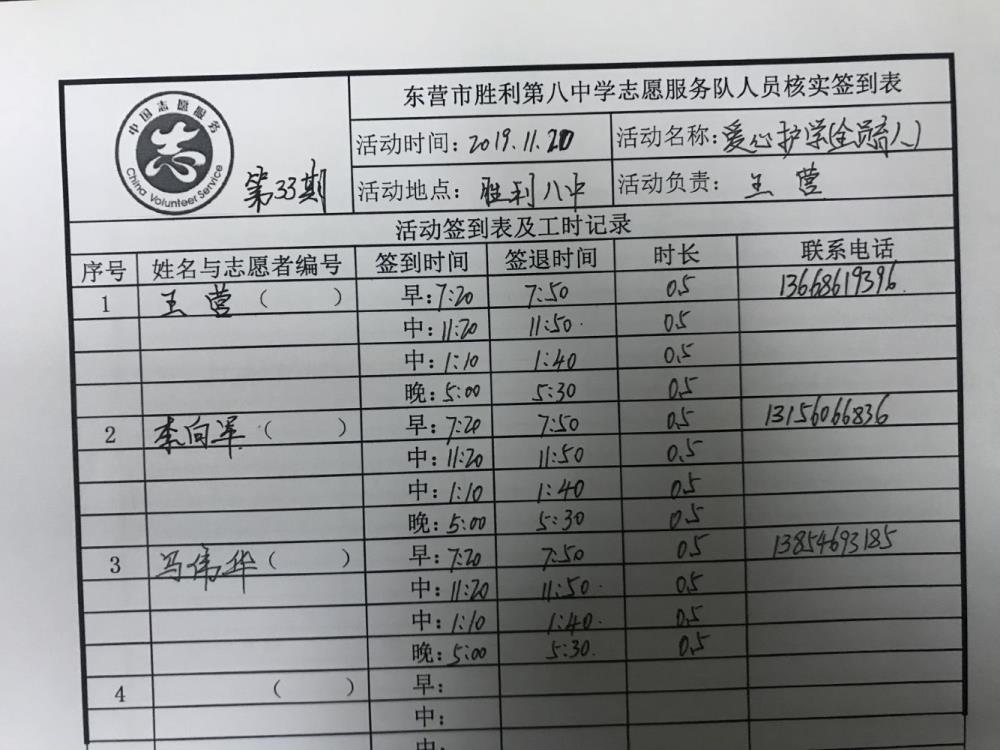 中国志愿服务
China Volunteer Service
第33期
东营市胜利第八中学志愿服务队人员核实签到表
活动时间: 2019.11.20 活动名称: 爱心护学(全员育人)
活动地点: 胜利八中 活动负责: 王营
活动签到表及工时记录
序号 姓名与志愿者编号 签到时间 签退时间 时长 联系电话
1 王营 ( ) 早: 7:20 7:50 0.5 13668619396
中: 11:20 11:50 0.5
中: 1:10 1:40 0.5
晚: 5:00 5:30 0.5
2 李向军 ( ) 早: 7:20 7:50 0.5 13156066836
中: 11:20 11:50 0.5
中: 1:10 1:40 0.5
晚: 5:00 5:30 0.5
3 冯伟华 ( ) 早: 7:20 7:50 0.5 13854693185
中: 11:20 11:50 0.5
中: 1:10 1:40 0.5
晚: 5:00 5:30 0.5
4 ( ) 早:
中:
中: